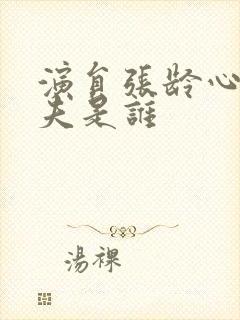 演員張齡心
夫是誰
湯裸